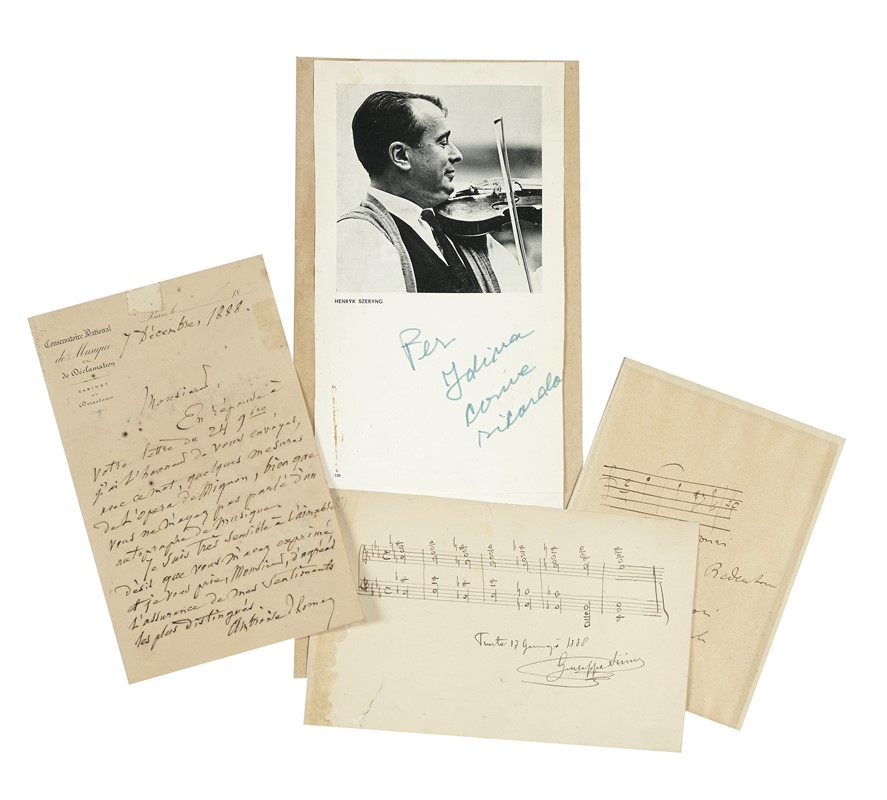 HENRYK SZERYNG
Per
Idina
come
ricordo
Conservatoire National
de Musique
et
de Déclamation
CABINET
DU
Directeur
Paris le 18
7 Décembre, 1888.
Monsieur,
En réponse à
votre lettre du 24 9bre,
j'ai l'honneur de vous envoyer,
avec ce mot, quelques mesures
de l'opera de Mignon, bien que
vous ne m'ayez pas parlé d'un
autographe de musique.
Je suis très sensible à l'aimable
désir que vous m'avez exprimé
et je vous prie, Monsieur, d'agréer
l'assurance de mes sentiments
les plus distingués
Ambroise Thomas
1888
Giuseppe